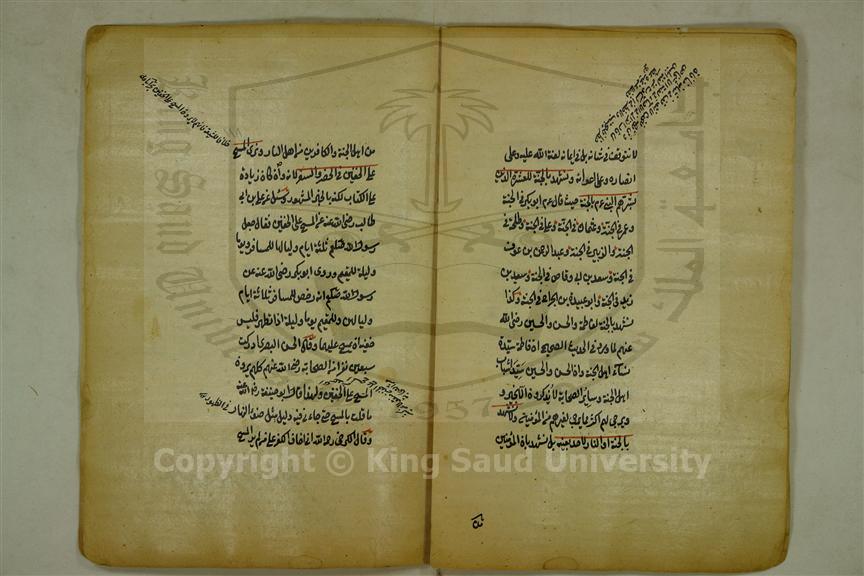 لا نتوقف في شانه بل في ايمانه لعنة الله عليه وعلى
انصاره وعلى اعوانه ونشهد بالجنة للعشرة الذين
بشرهم النبي عم بالجنة حيث قال عم ابو بكر في الجنة
وعمر في الجنة وعثمان في الجنة وعلي في الجنة وطلحة في
الجنة والزبير في الجنة وعبد الرحمن بن عوف
في الجنة وسعد بن ابي وقاص في الجنة وسعيد بن
زيد في الجنة وابو عبيدة بن الجراح في الجنة وكذا
نشهد بالجنة لفاطمة والحسن والحسين رضي الله
عنهم لما ورد في الحديث الصحيح ان فاطمة سيدة
نساء اهل الجنة وان الحسن والحسين سيدا شباب
اهل الجنة وسائر الصحابة لا يذكرون الا بخير و
يرجى لهم اكثر مما يرجى لغيرهم من المؤمنين ولا نشهد
بالجنة والنار لاحد بعينه بل نشهد بان المؤمنين
من اهل الجنة والكافرين من اهل النار ونرى المسح
على الخفين في الحضر والسفر لانه وان كان زيادة
على الكتاب لكنه بالخبر المشهور وسئل عن علي بن ابي
طالب رضي الله عنه عن المسح على الخفين فقال جعل
رسول الله صلعم ثلثة ايام ولياليها للمسافر ويوما
وليلة للمقيم وروى ابو بكر رضي الله عنه عن
رسول الله صلعم انه رخص للمسافر ثلاثة ايام
ولياليهن وللمقيم يوما وليلة اذا تطهر فلبس
خفيه ان يمسح عليهما وقال الحسن البصري ادركت
سبعين نفرا من الصحابة رضي الله عنهم كلهم يرون
المسح على الخفين ولهذا قال ابو حنيفة رحمه الله
ما قلت بالمسح حتى جاءني فيه دليل مثل ضوء النهار
وقال الكرخي رحمه الله اخاف الكفر على من لم ير المسح
Copyright © King Saud University
King Saud University
1957